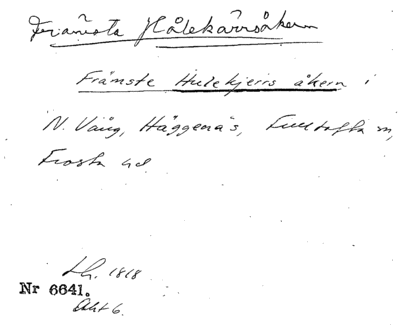 Främsta Hålekärrsåkern
Främste Hulekjerrs åkern i
N. Vång, Häggenäs, Fulltofta sn,
Frosta hd.
Lh. 1818
Nr 6641.
Akt 6.